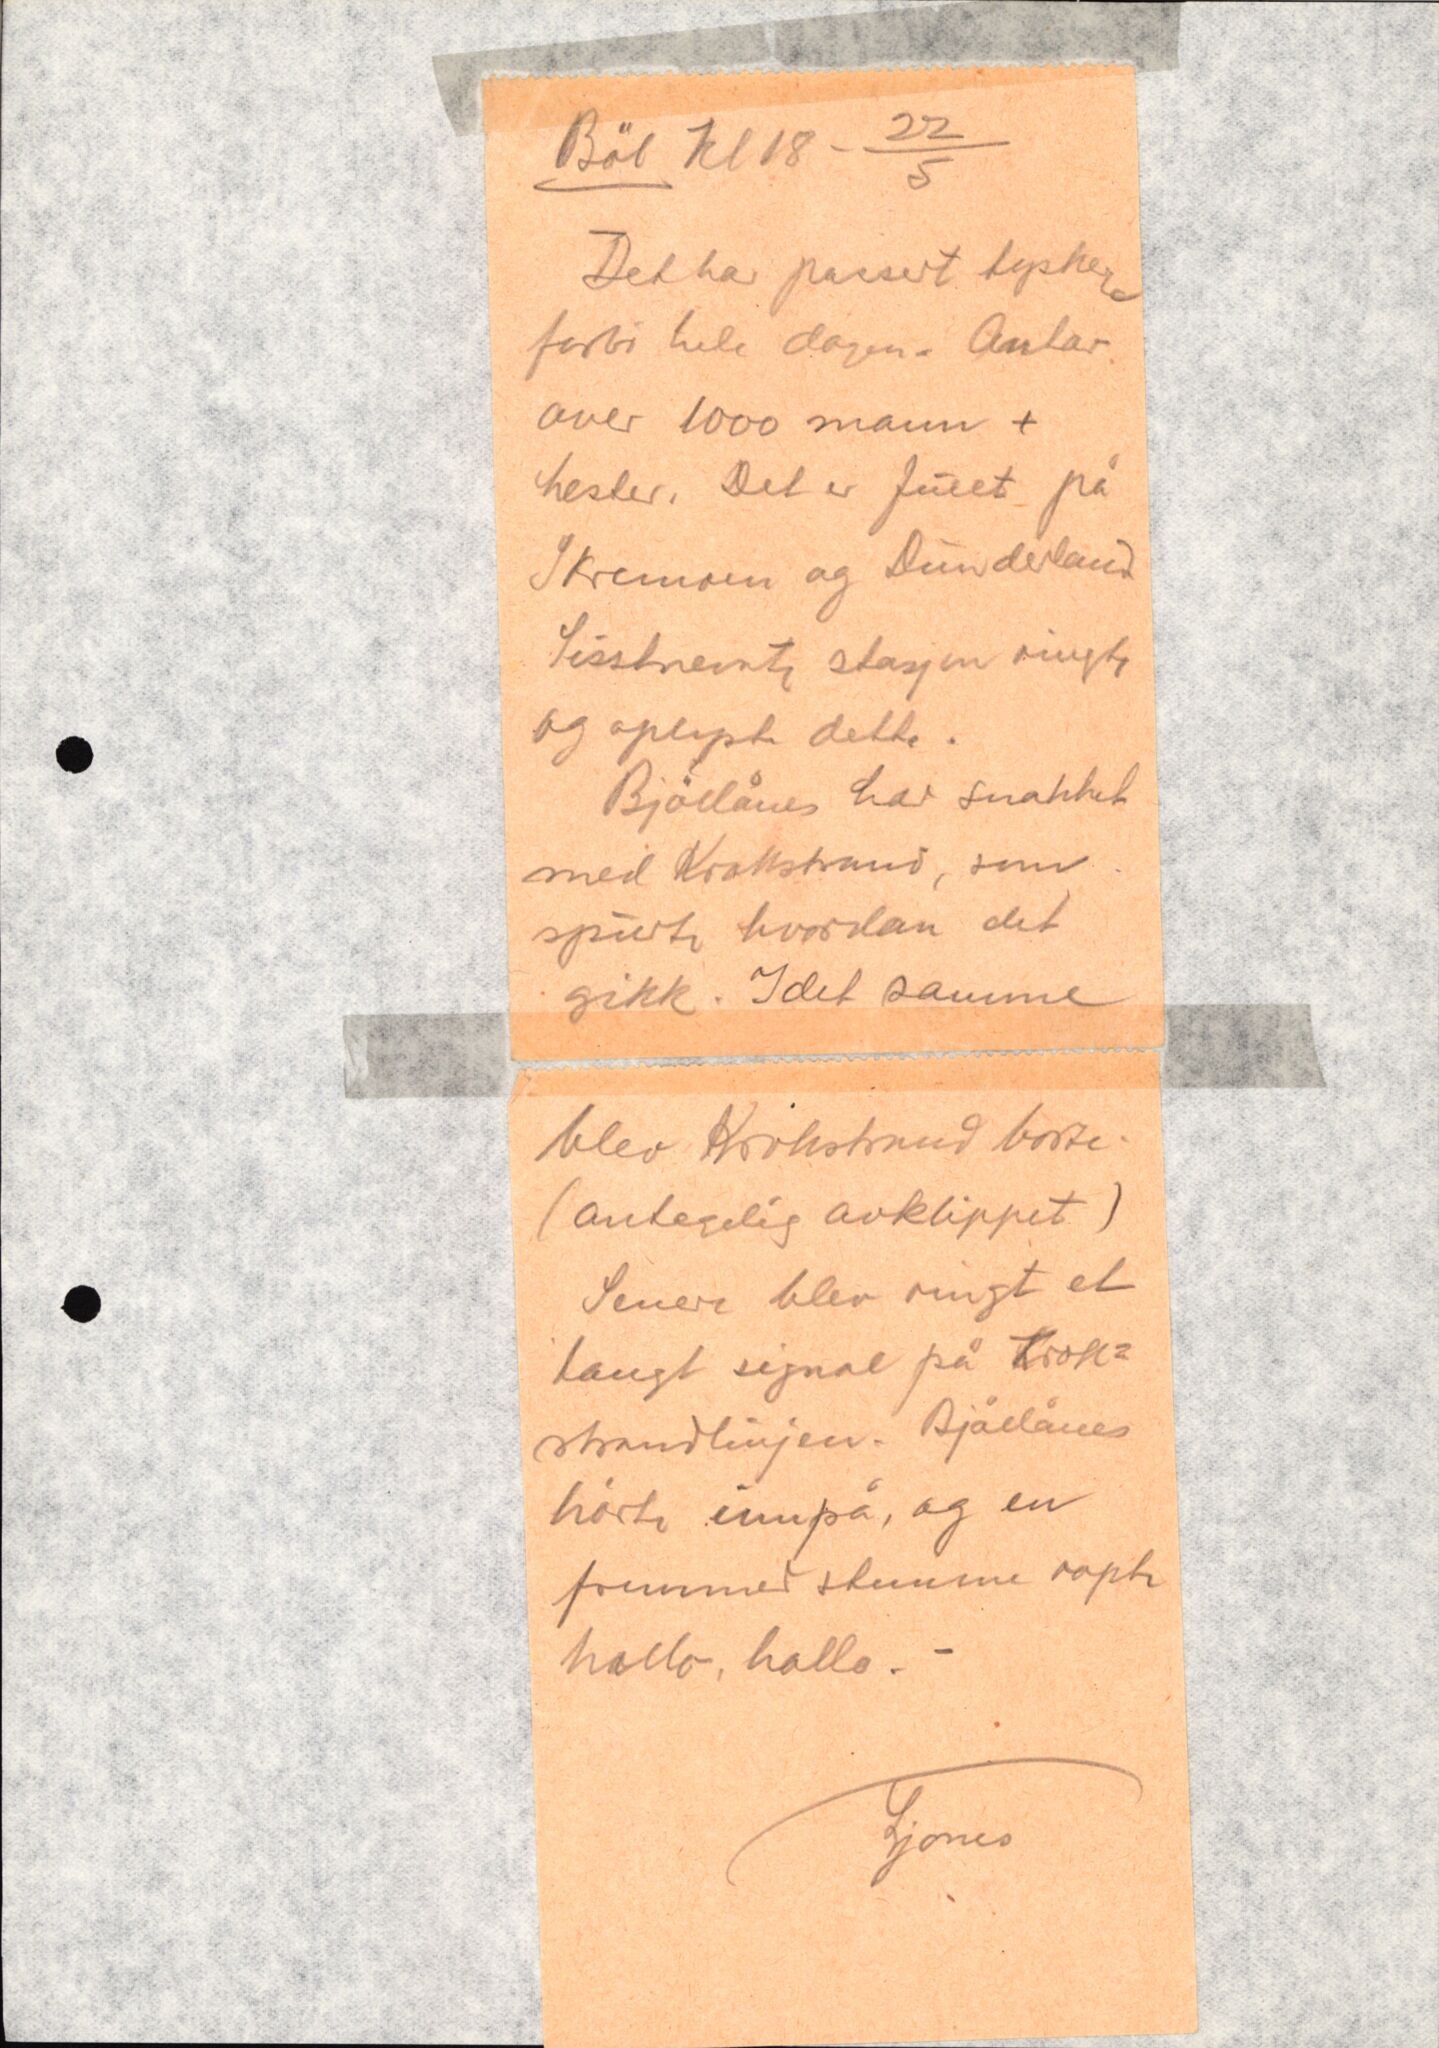 Böl Kl 18 - 22/5
Det har passert tyskere
forbi hele dagen. Antar
over 1000 mann +
hester. Det er fullt på
Skremoen og Dunderland
Sisstnevnte stasjon ringte
og oplyste dette.
Bjöllånes har snakket
med Krokstrand, som
spurte hvordan det
gikk. I det samme
blev Krokstrand borte.
(antagelig avklippet)
Senere blev ringt et
langt signal på Krok=
strandlinjen. Bjöllånes
hörte innpå, og en
fremmed stemme ropte
hallo, hallo. -